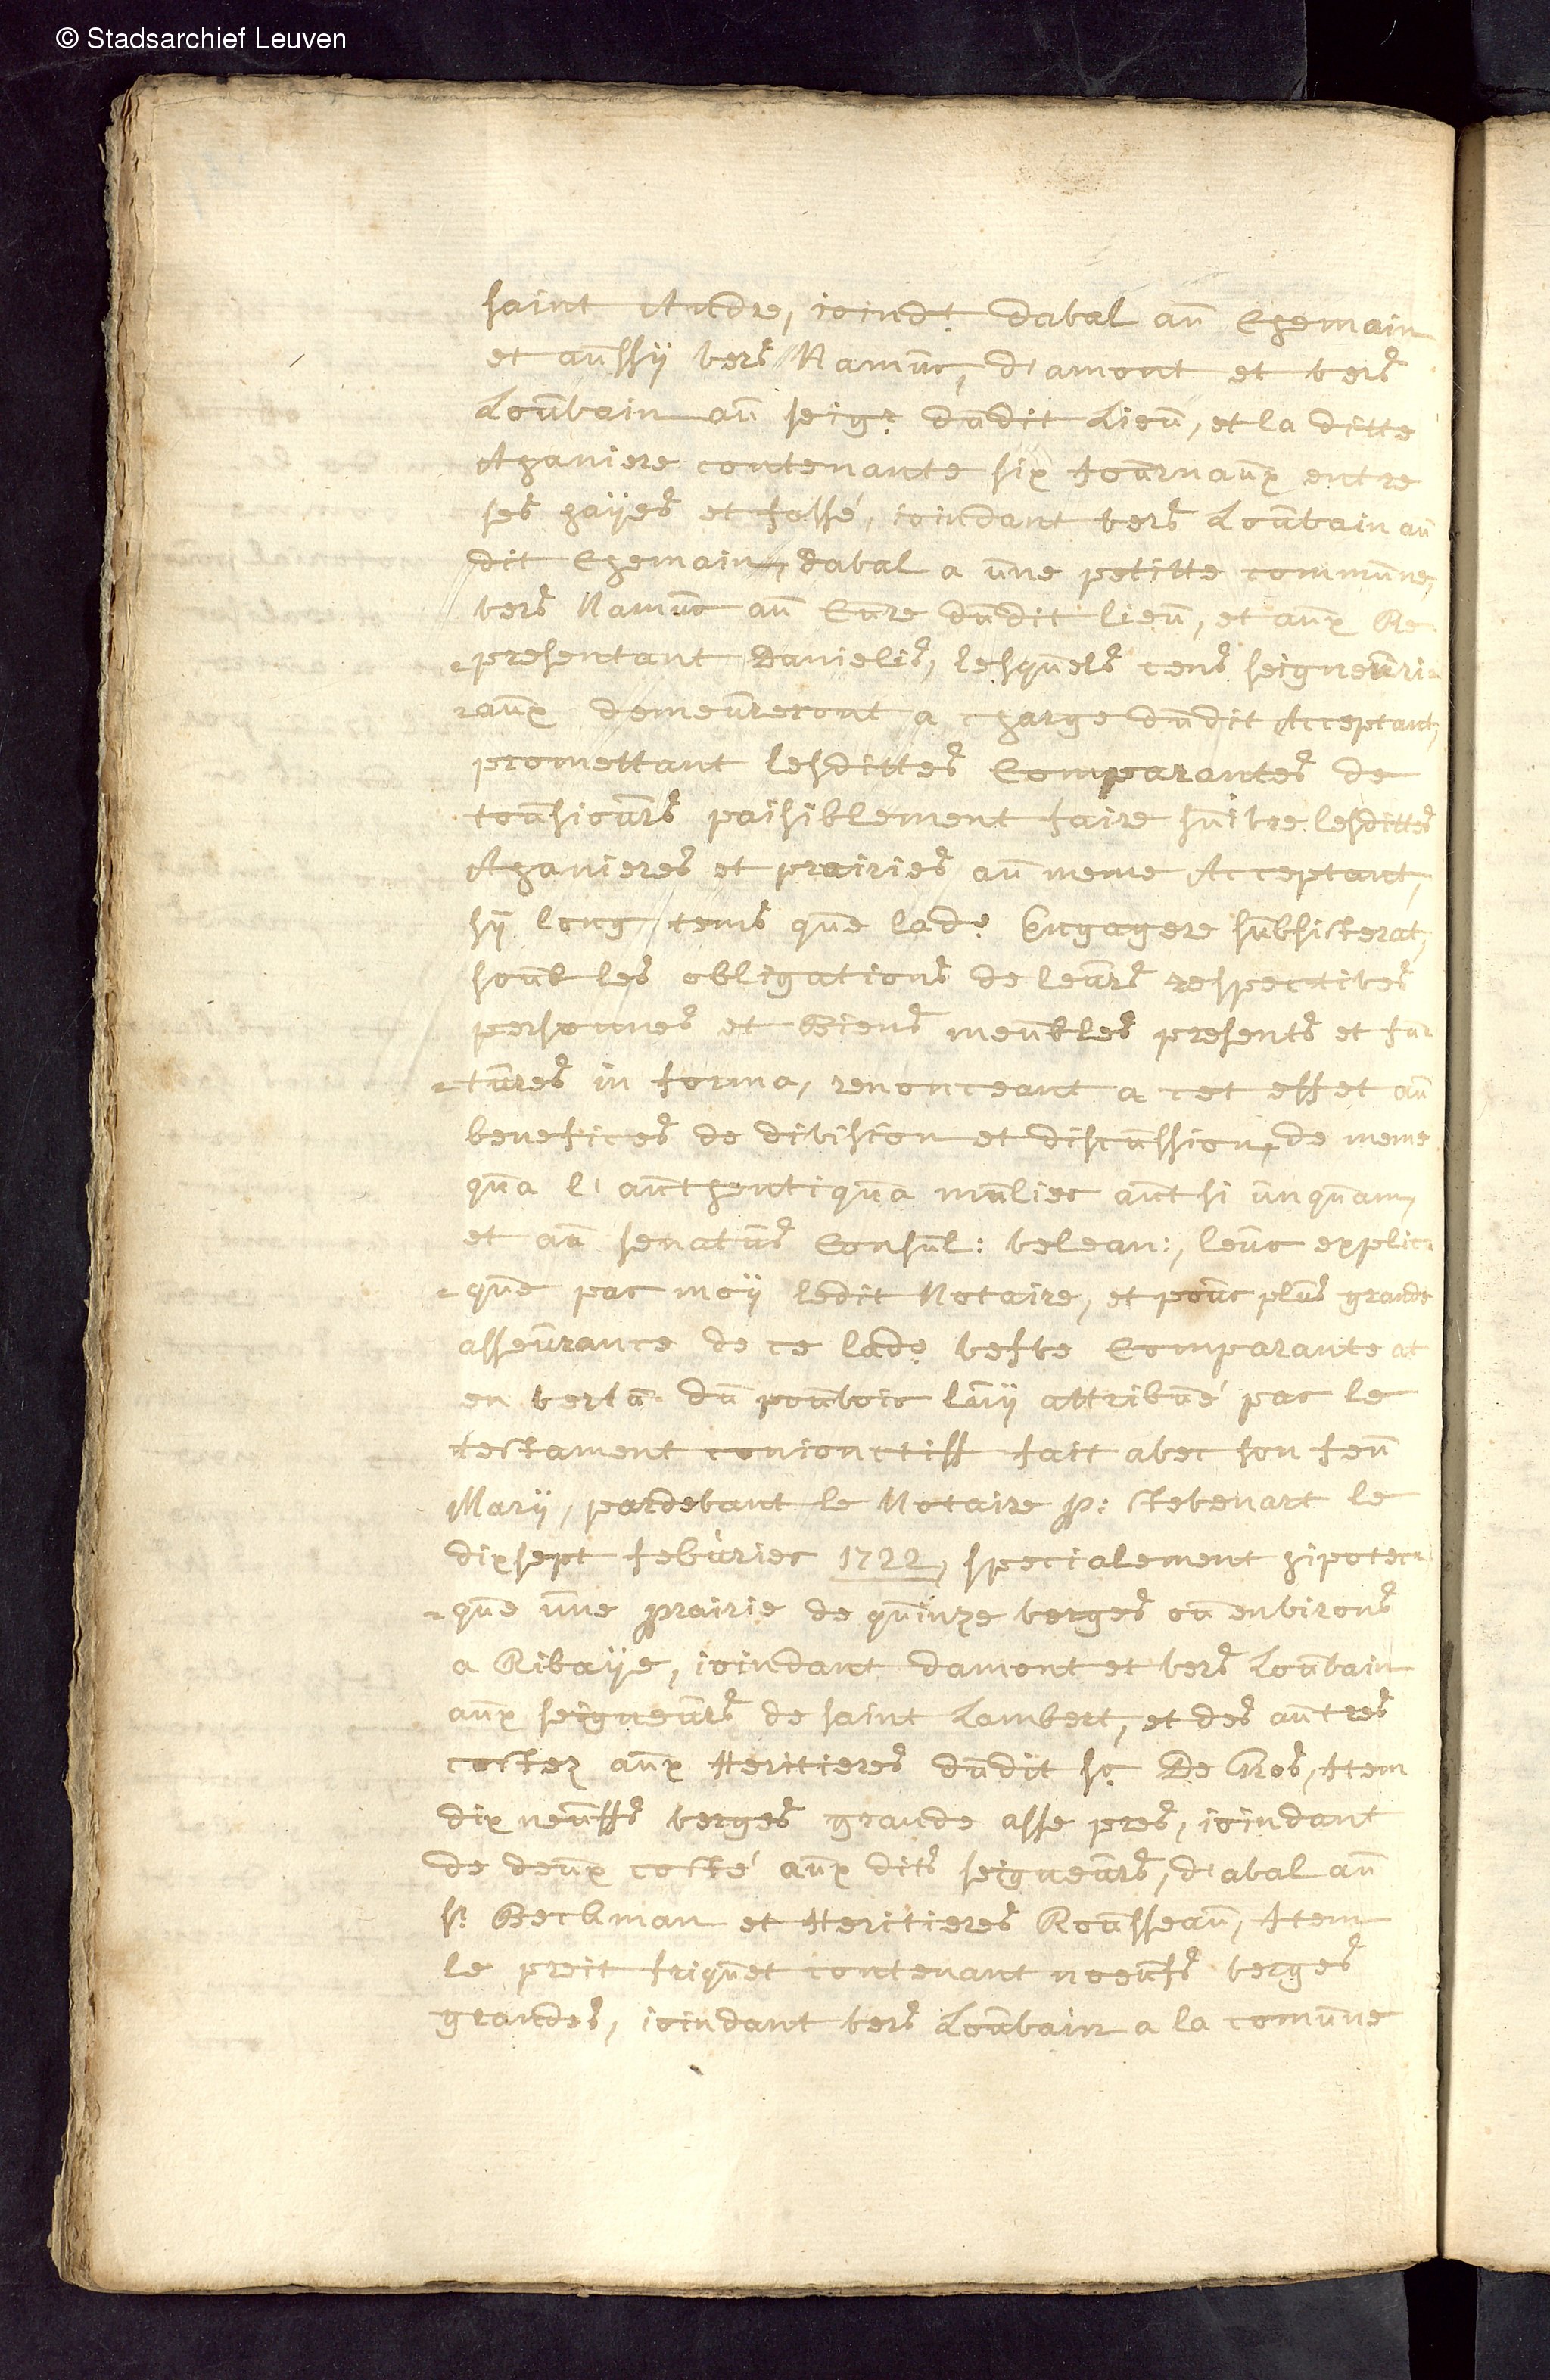 © Stadsarchief Leuven
saint Andre, ioindt. dabal au Chemain
et aussÿ vers Namur, d'amont et vers
Louvain au seigr. dudit Lieu, et la ditte
Chaniere contenante six Journaux entre
ses haÿes et fossé, ioindant vers Louvain au
dit Chemain, dabal a une petitte commune,
vers Namur au Cure dudit lieu, et aux Re-
-presentant Danielis, lesquels cens seigneuri-
-aux demeureront a charge dudit Acceptant,
promettant lesdittes Comparantes de
tousiours paisiblement faire suivre lesdittes
Chanieres et prairies au meme Acceptant,
sÿ long tems que lade. Engagere subsisterat,
soub les obligations de leurs respectives
personnes et Biens meubles presents et fu-
-tures in forma, renonceant a cet effet au
benefices de division et discussion, de meme
qua l'authentiqua mulier aut si unquam,
et au senatus Consul: velean:, leur explic-
-que par moÿ ledit Notaire, et pour plus grande
asseurance de ce lade. vefve Comparante at
en vertu du pouvoir luÿ attribué par le
testament conionctiff fait avec son feu
Marÿ, pardevant le Notaire P: Stevenart le
dixsept febvrier 1722, specialement hipotec-
-que une prairie de quinze verges ou environs
a Rivaÿe, ioindant damont et vers Louvain
aux seigneurs de saint Lambert, et des autres
costez aux Heritieres dudit sr. De Ros, Item
dix neuffs verges grande asse pres, ioindant
de deux costé aux dits seigneurs, d'abal au
sr. Beckman et Heritieres Rousseau, Item
le preit friquet contenant noeufs verges
grandes, ioindant vers Louvain a la comune